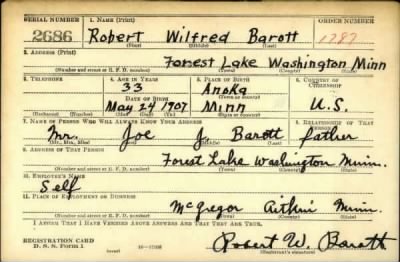 SERIAL NUMBER 1. NAME (Print) ORDER NUMBER
2686 Robert Wilfred Barott 1787
(First) (Middle) (Last)
2. ADDRESS (Print)
Forest Lake Washington Minn
(Number and street or R. F. D. number) (Town) (County) (State)
3. TELEPHONE 4. AGE IN YEARS 5. PLACE OF BIRTH 6. COUNTRY OF CITIZENSHIP
33 Anoka
DATE OF BIRTH (Town or county)
May 24 1907 Minn U.S.
(Mo.) (Day) (Yr.) (State or country)
7. NAME OF PERSON WHO WILL ALWAYS KNOW YOUR ADDRESS 8. RELATIONSHIP OF THAT PERSON
Mr. Joe J Barott father
(Mr., Mrs., Miss) (First) (Middle) (Last)
9. ADDRESS OF THAT PERSON
Forest Lake Washington Minn.
(Number and street or R. F. D. number) (Town) (County) (State)
10. EMPLOYER'S NAME
Self
11. PLACE OF EMPLOYMENT OR BUSINESS
McGregor Aitkin Minn.
(Number and street or R. F. D. number) (Town) (County) (State)
I AFFIRM THAT I HAVE VERIFIED ABOVE ANSWERS AND THAT THEY ARE TRUE.
REGISTRATION CARD
D. S. S. Form 1 Robert W. Barott